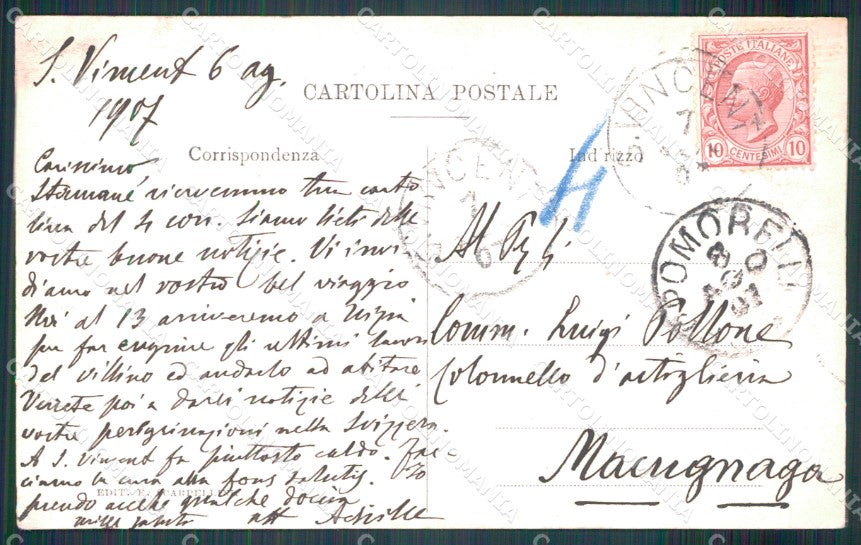 S. Vincent 6 ag.
1907
CARTOLINA POSTALE
Corrispondenza
Indirizzo
POSTE ITALIANE
10 CENTESIMI 10
S. VINCENT
VINCENT
POMORELLI
Carissimo,
Stamane ricevemmo tua carto
lina del 4 corr. Siamo lieti delle
vostre buone notizie. Vi invi
diamo nel vostro bel viaggio
Noi al 13 arriveremo a Nizza
per far eseguire gli ultimi lavori
del villino ed andarlo ad abitare
Verrete poi a darci notizie delle
vostre peregrinazioni nella Svizzera.
A S. Vincent fa piuttosto caldo. Fac
ciamo la cura alla fons salutis. Io
prendo anche qualche doccia
mille saluti aff Achille
EDIT.
Al
Comm. Luigi Pollone
Colonnello d'artiglieria
Macugnaga
CARTOLINOMANIA